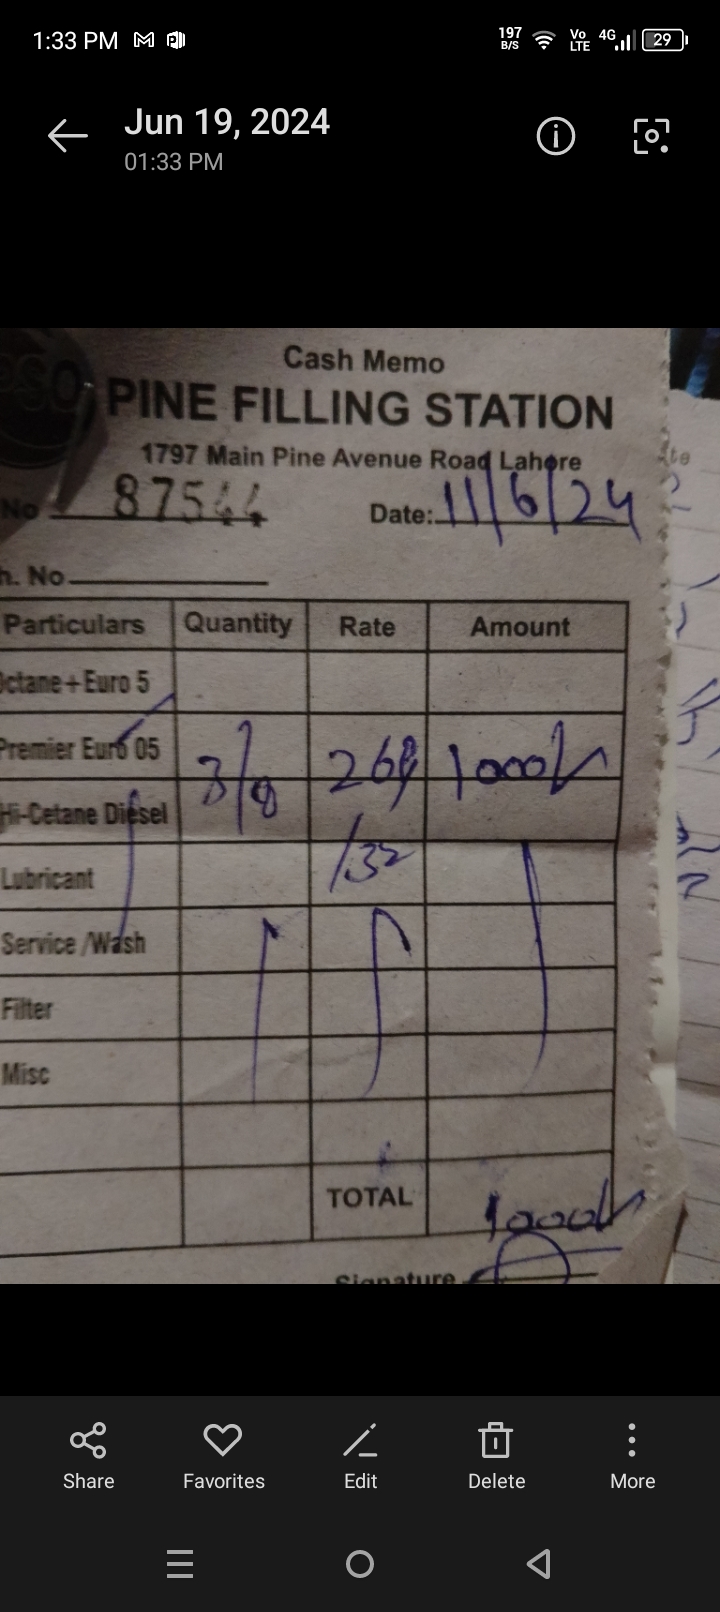 1:33 PM 197 B/S Vo LTE 4G 29
Jun 19, 2024
01:33 PM
Cash Memo
PSO PINE FILLING STATION
1797 Main Pine Avenue Road Lahore
No 87544 Date: 11/6/24
h. No
Particulars Quantity Rate Amount
Octane+Euro 5
Premier Euro 05 3/8 268 1000/
/32
Hi-Cetane Diesel
Lubricant
Service /Wash
Filter
Misc
TOTAL 1000/
Signature
Share Favorites Edit Delete More